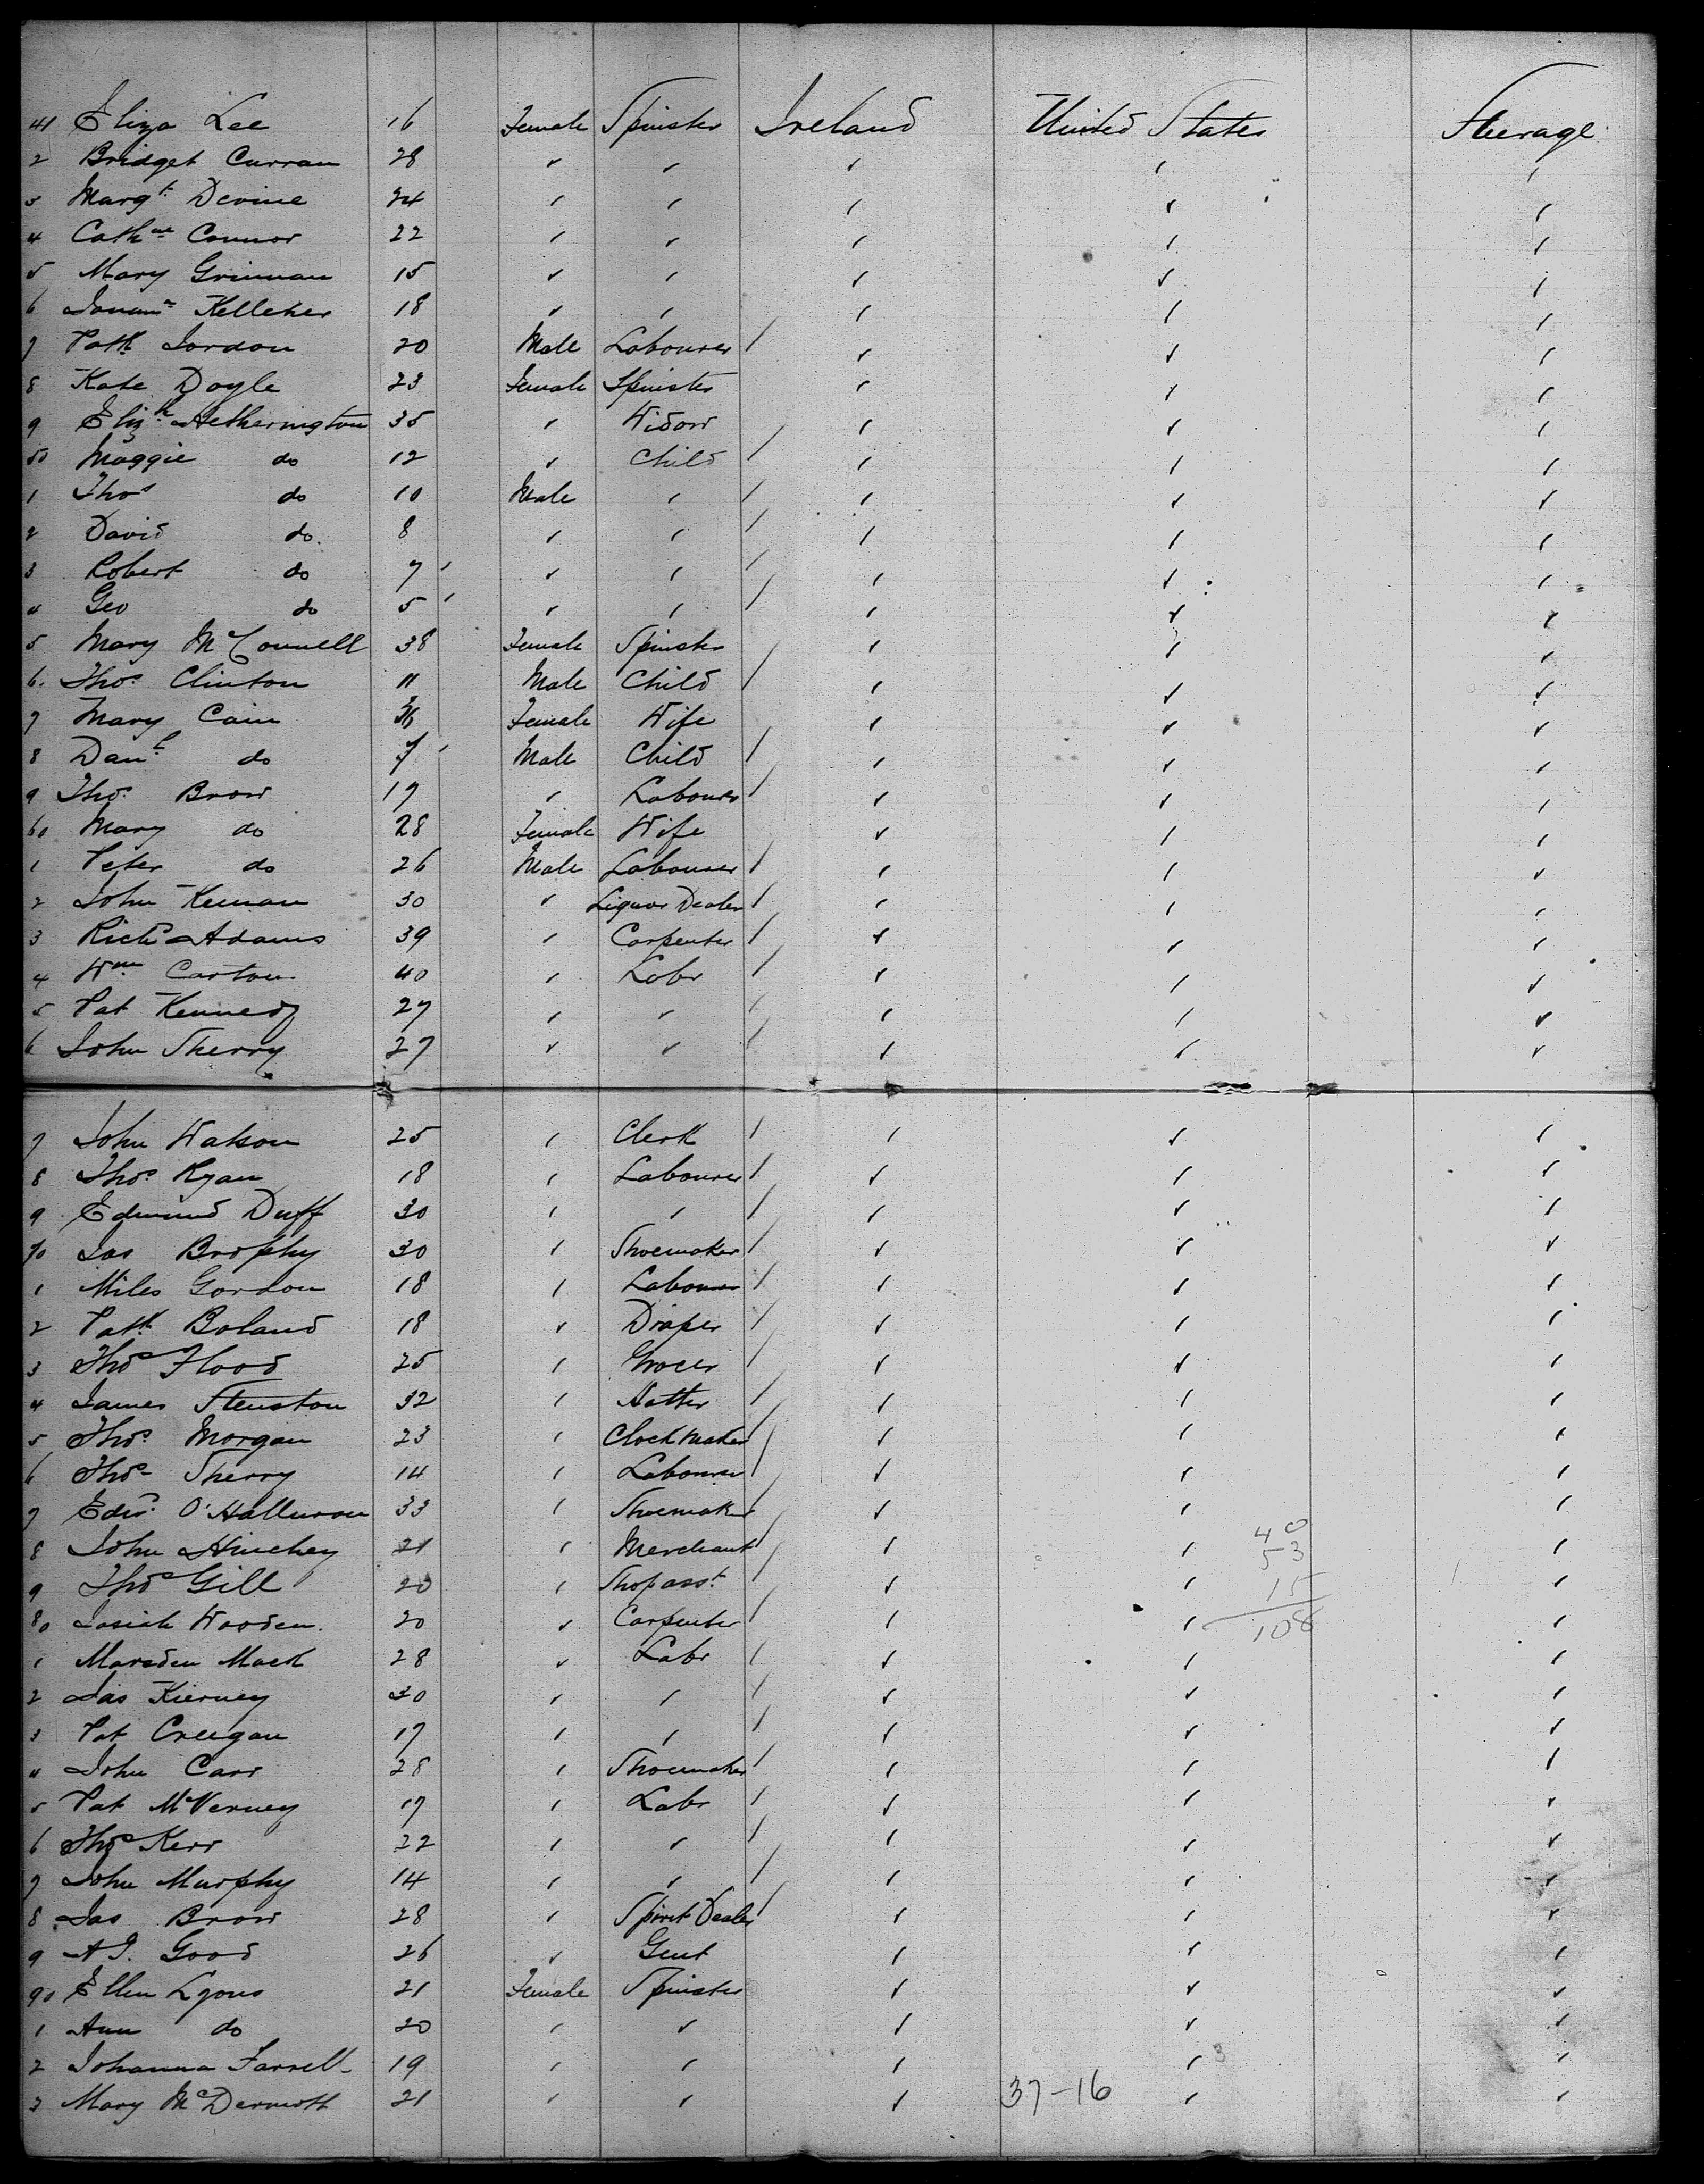 41 Eliza Lee 16 Female Spinster Ireland United States Steerage
2 Bridget Curran 28 " " " " "
3 Margt. Devine 24 " " " " "
4 Cathne Connor 22 " " " " "
5 Mary Grinnan 15 " " " " "
6 Kelleher 18 " " " " "
7 Patk Jordon 20 Male Labourer " " "
8 Kate Doyle 23 Female Spinster " " "
9 Elizh Hetherington 35 " Widow " " "
50 Maggie do 12 " Child " " "
1 Thos do 10 Male " " " "
2 David do. 8 " " " " "
3 Robert do 7 " " " " "
4 Geo do 5 " " " " "
5 Mary McConnell 38 Female Spinster " " "
6. Thos. Clinton 11 Male Child " " "
7 Mary Cain Female Wife " " "
8 Danl. do 7 Male Child " " "
9 Thos. Brow 19 " Labourer " " "
60 Mary do 28 Female Wife " " "
1 Peter do 26 Male Labourer " " "
2 John Keenan 30 " Liquor Dealer " " "
3 Richd Adams 39 " Carpenter " " "
4 Wm Carton 40 " Labr " " "
5 Pat Kennedy 27 " " " " "
6 John Sherry 27 " " " " "
7 John Watson 25 " Clerk " " "
8 Thos. Ryan 18 " Labourer " " "
9 Edmund Duff 30 " " " " "
70 Jas Brophy 30 " Shoemaker " " "
1 Miles Gordon 18 " Labourer " " "
2 Patk Boland 18 " Draper " " "
3 Thos Flood 25 " Grocer " " "
4 James Stenston 32 " Hatter " " "
5 Thos. Morgan 23 " Clockmaker " " "
6 Thos. Sherry 14 " Labourer " " "
7 Edwd. O'Halluron 33 " Shoemaker " " "
8 John Hinchey 21 " Merchant " " " 40
53
9 Thos Gill 20 " Shopasst. " " " 15
80 Josiah Wooden. 20 " Carpenter " " " 108
1 Marsden Mack 28 " Labr " " "
2 Jas Kierney 30 " " " " "
3 Pat Creegan 17 " " " " "
4 John Carr 28 " Shoemaker " " "
5 Pat McVerney 17 " Labr " " "
6 Thos Kerr 22 " " " " "
7 John Murphy 14 " " " " "
8 Jas Brow 28 " Spirit Dealer " " "
9 A J. Good 26 " Gent " " "
90 Ellen Lyons 21 Female Spinster " " "
1 Ann do 20 " " " " "
2 Johanna Farrell 19 " " " " 3 "
3 Mary McDermott 21 " " " 37-16 " "